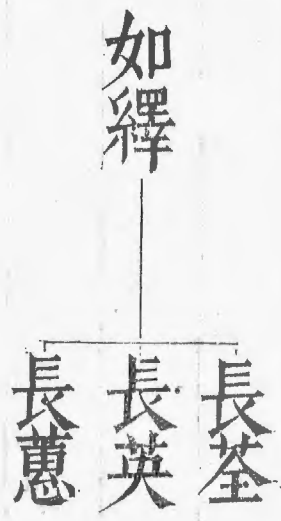 如繹
長荃
長英
長蕙